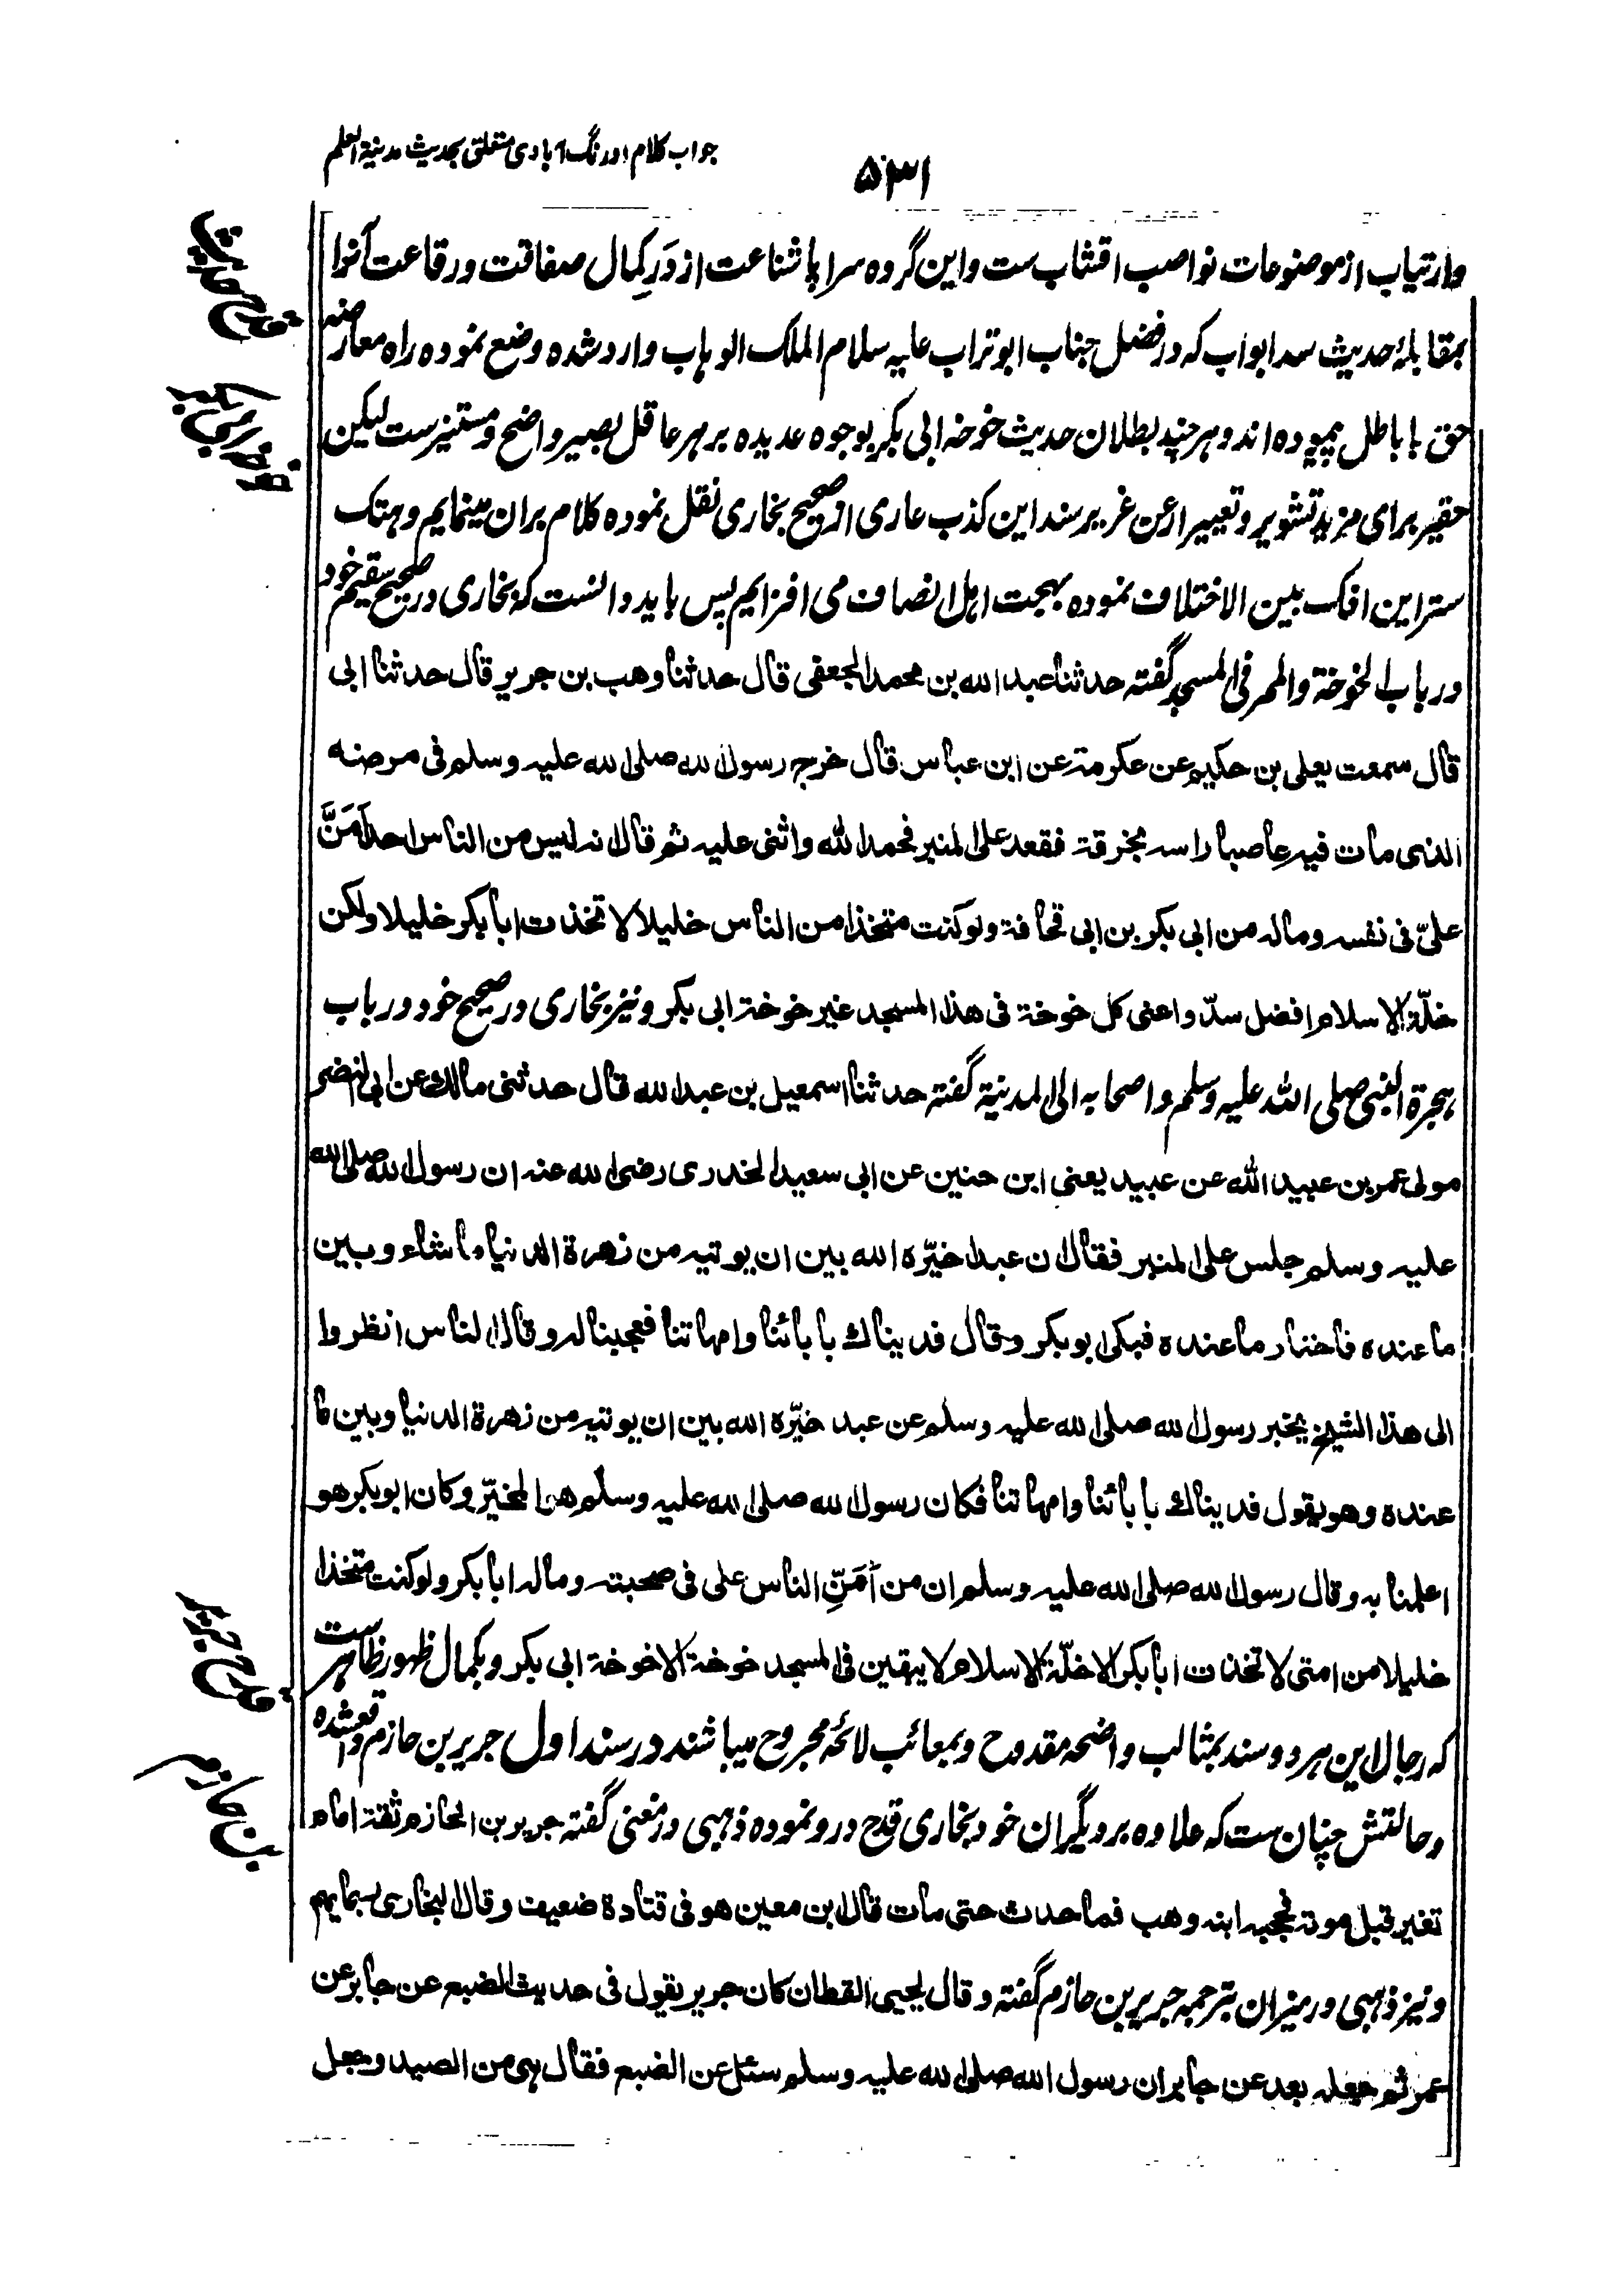 جواب کلام اورنگ آبادی متعلق بحدیث مدینة العلم
۵۳۱
وارتیاب از موضوعات نواصب اقشاب ست واین گروه سراپا شناعت از در کمال صفاقت و رقاعت آنرا
بمقابلۀ حدیث سد ابواب که در فضل جناب ابو تراب علیه سلام الملک الوهاب وارد شده وضع نموده راه معارضه
حق با باطل پیموده اند و هر چند بطلان حدیث خوخه ابی بکر بوجوه عدیده بر هر عاقل بصیر واضح و مستنیرست لیکن
حقیر برای مزید تشویر و تعییر ارعن غریر سند این کذب عاری از صحیح بخاری نقل نموده کلام بران مینمایم و هتک
ستر این افک بین الاختلاق نموده بهجت اهل انصاف می افزایم پس باید دانست که بخاری در صحیح سقیم خود
در باب الخوخة والممر فی المسجد گفته حدثنا عبد الله بن محمد الجعفی قال حدثنا وهب بن جریر قال حدثنا ابی
قال سمعت یعلی بن حکیم عن عکرمة عن ابن عباس قال خرج رسول الله صلی الله علیه وسلم فی مرضه
الذی مات فیه عاصبا راسه بخرقة فقعد علی المنبر فحمد الله واثنی علیه ثم قال انه لیس من الناس احد اَمَنَّ
علیّ فی نفسه وماله من ابی بکر بن ابی قحافة ولو کنت متخذا من الناس خلیلا لاتخذت ابا بکر خلیلا ولکن
خلّة الاسلام افضل سدّوا عنی کل خوخة فی هذا المسجد غیر خوخة ابی بکر و نیز بخاری در صحیح خود در باب
هجرة النبی صلی الله علیه وسلم واصحابه الی المدینة گفته حدثنا اسمعیل بن عبد الله قال حدثنی مالك عن ابی النضر
مولی عمر بن عبید الله عن عبید یعنی ابن حنین عن ابی سعید الخدری رضی الله عنه ان رسول الله صلی الله
علیه وسلم جلس علی المنبر فقال ان عبدا خیّره الله بین ان یوتیه من زهرة الدنیا ما شاء وبین
ما عنده فاختار ما عنده فبکی ابو بکر وقال فدیناك بابائنا وامهاتنا فعجبنا له وقال الناس انظروا
الی هذا الشیخ یخبر رسول الله صلی الله علیه وسلم عن عبد خیّره الله بین ان یوتیه من زهرة الدنیا وبین ما
عنده وهو یقول فدیناك بابائنا وامهاتنا فکان رسول الله صلی الله علیه وسلم هو المخیّر وکان ابو بکر هو
اعلمنا به وقال رسول الله صلی الله علیه وسلم ان من اَمَنّ الناس علی فی صحبته وماله ابا بکر ولو کنت متخذا
خلیلا من امتی لاتخذت ابا بکر الا خلّة الاسلام لا یبقین فی المسجد خوخة الا خوخة ابی بکر و بکمال ظهور ظاهرست
که رجال این هر دو سند بمثالب واضحه مقدوح و بمعائب لائحه مجروح میباشند در سند اول جریر بن حازم واقع شده
و حالتش چنان ست که علاوه بر دیگران خود بخاری قدح درو نموده ذهبی در مغنی گفته جریر بن الحازم ثقة امام
تغیر قبل موته فحجبه ابنه وهب فما حدث حتی مات قال ابن معین هو فی قتادة ضعیف وقال البخاری ربما یهم
و نیز ذهبی در میزان بترجمه جریر بن حازم گفته وقال یحیی القطان کان جریر یقول فی حدیث الضبع عن جابر عن
عمر ثم جعله بعد عن جابر ان رسول الله صلی الله علیه وسلم سئل عن الضبع فقال هی من الصید وجعل
قدح جریر
بن حازم